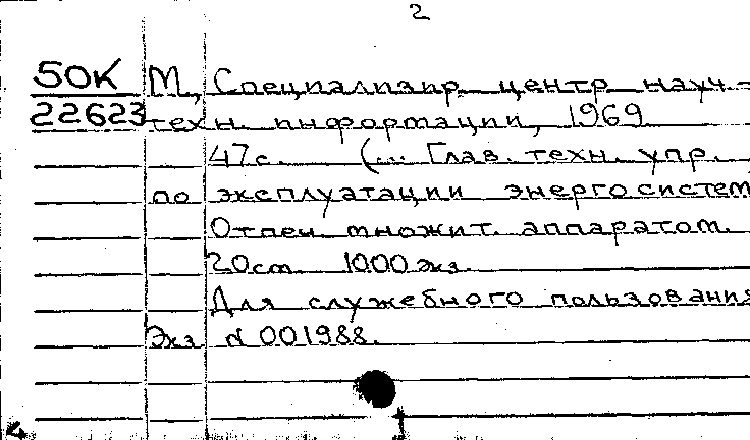 2
50К М, Специализир. центр науч.-
22623 техн. информации, 1969
47с. (... Глав. техн. упр.
по эксплуатации энергосистем
Отпеч. множит. аппаратом.
20см. 1000 экз.
Для служебного пользования
Экз N 001988.